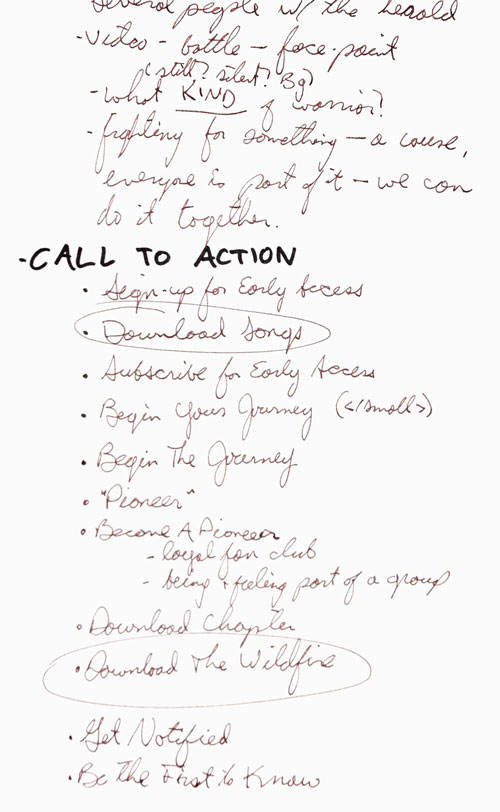 several people w/ the herald
- video - battle - face-point
(still? silent? Bg)
- what KIND of warrior?
- fighting for something - a cause,
everyone is part of it - we can
do it together.
- CALL TO ACTION
• Sign-up for Early Access
• Download Songs
• Subscribe for Early Access
• Begin Your Journey (</small>)
• Begin The Journey
• "Pioneer"
• Become A Pioneer
- loyal fan club
- being + feeling part of a group
• Download Chapter
• Download The Wildfire
• Get Notified
• Be the First to Know